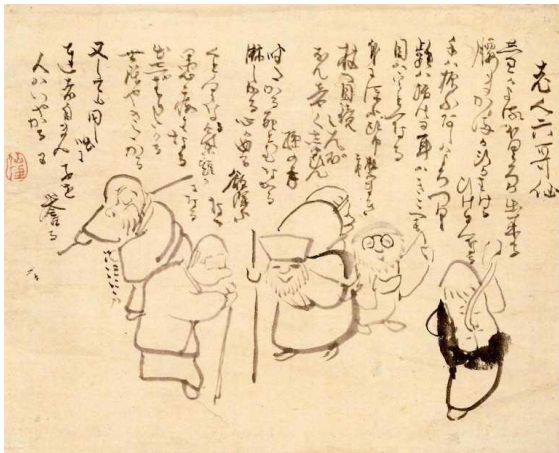 老人六哥仙
皺かよるほ黒か出来る
腰まかる頭かはけるひけ白くなる
手は振ふ足はよろつく
歯は抜る耳はきこへす
目はうとくなる
身に添は頭巾襟巻
杖目鏡たんぽ
をんしやくしゆひん孫の手
聞たかる死ともなかる
淋しかる心か曲る欲深ふなる
くとくなる気短になる
愚痴になる
出しやはりたかる
世話やきたかる
又しても同し咄に
達者自まんに子を誉る
人かいやかる
仙厓